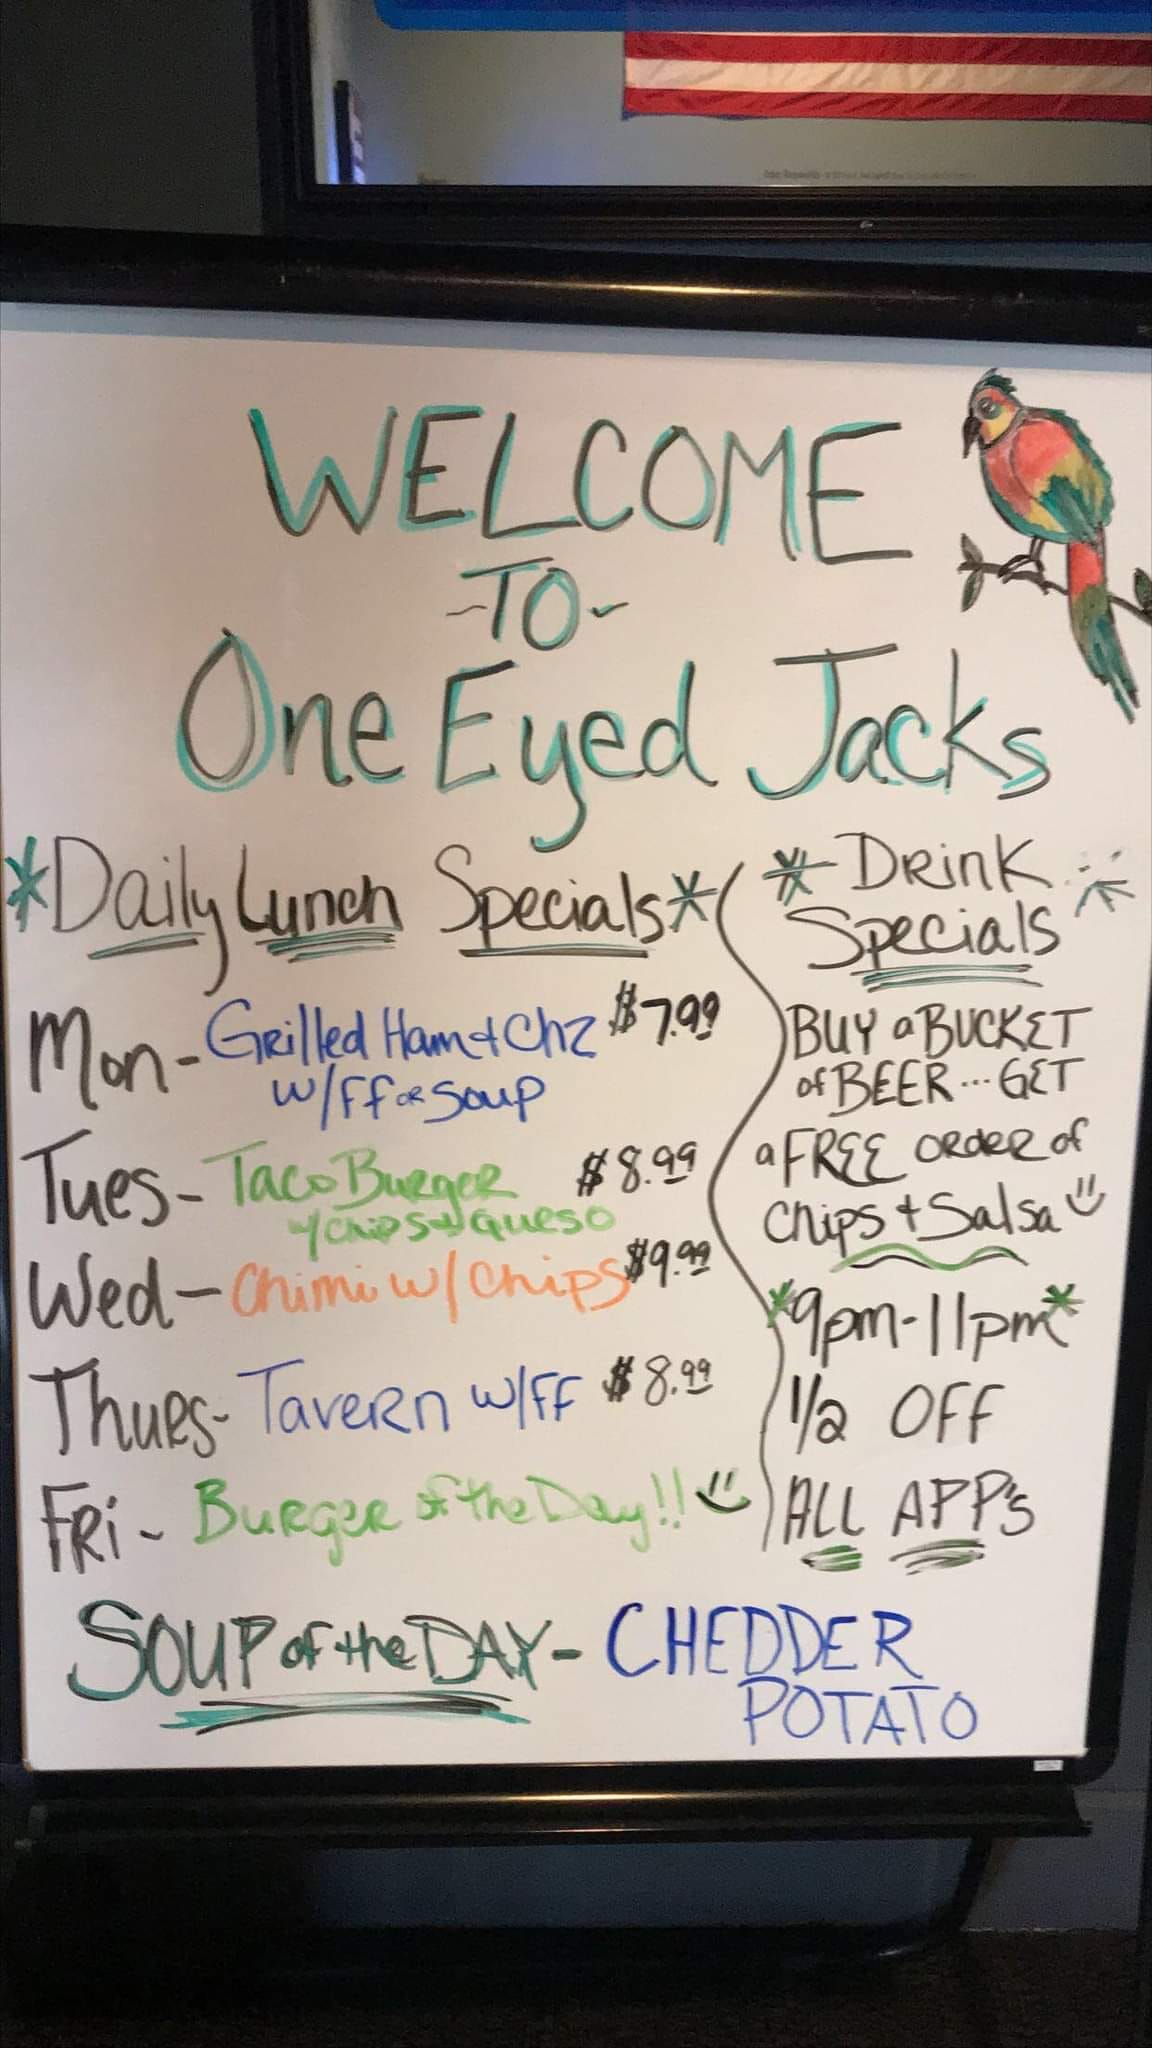 WELCOME
-TO-
One Eyed Jacks
*Daily Lunch Specials*
Mon- Grilled Ham + Chz $7.99
w/FF or Soup
Tues- Taco Burger $8.99
w/chips + Queso
Wed- Chimi w/ Chips $9.99
Thurs- Tavern w/FF $8.99
Fri- Burger of the Day!!
* Drink
Specials
BUY a BUCKET
of BEER...GET
a FREE ORDER of
Chips + Salsa
*9pm-11pm*
1/2 OFF
ALL APP's
SOUP of the DAY- CHEDDER
POTATO